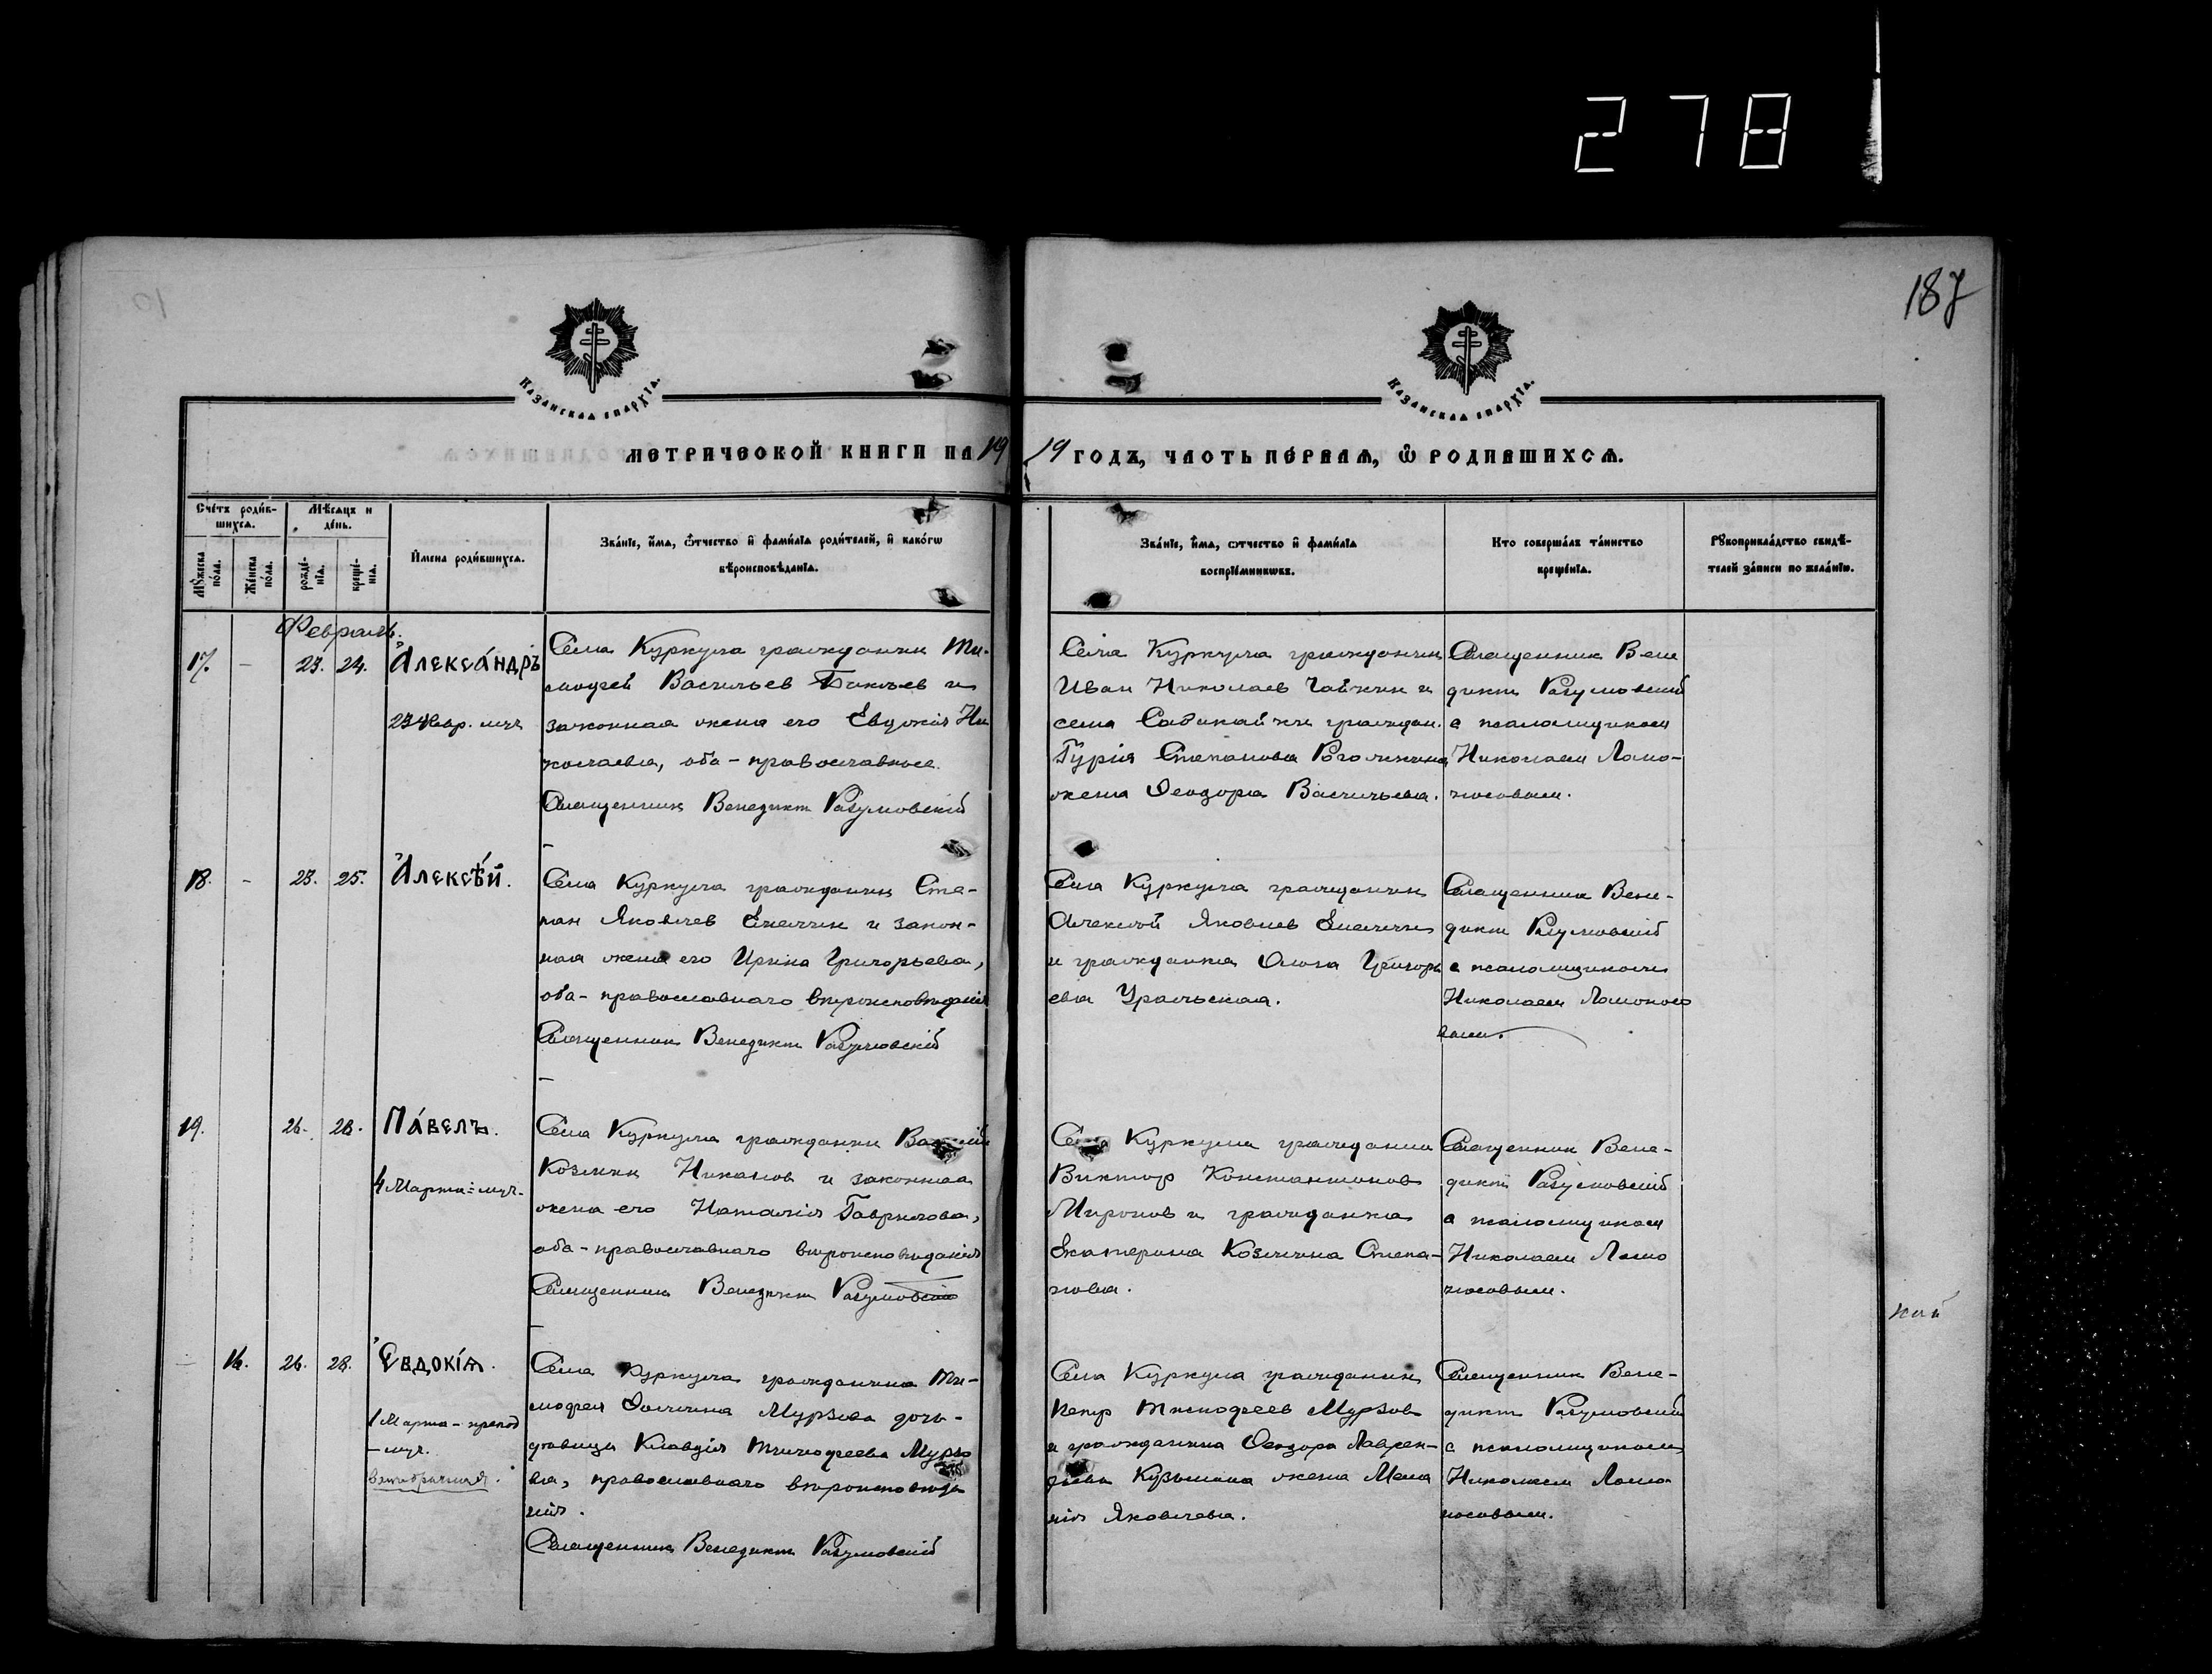 278
187
Казанская епархїа.
Казанская епархїа.
МЕТРИЧЕСКОЙ КНИГИ НА 19
19 ГОДЪ, ЧАСТЬ ПЕ́РВАѦ, Ѡ РОДИВШИХСѦ.
Сче́тъ роди́в-
шихсѧ.
Мѣ́сѧцъ и
де́нь.
Мꙋ́жеска
по́ла.
Же́нска
по́ла.
рожде́-
нїѧ.
креще́-
нїѧ.
И҆мена роди́вшихсѧ.
Зва́нїе, и҆́мѧ, ѻ҆́тчество и҆ фами́лїѧ роди́телей, и҆ како́гѡ
вѣроисповѣ́данїѧ.
Зва́нїе, и҆́мѧ, ѻ҆тчество и҆ фами́лїѧ
воспрїе́мникѡвъ.
Кто соверша́лъ та́инство
креще́нїѧ.
Рꙋкоприкла́дство свидѣ́-
телей за́писи по жела́нїю.
Февраль.
17. - 23. 24. Алекса́ндръ
23 Февр. муч.
Села Куркула гражданин Ти-
мофей Васильев и
законная жена его Евдокия Ни
колаева, оба - православные.
Священник Венедикт Разумовский
Села Куркула гражданин
Иван Николаев Чайкин и
села граждан.
Гурия Степанова
жена Феодора Васильева.
Священник Вене
дикт Разумовский
с псаломщиком
Николаем Ломо-
носовым.
18. - 23. 25. Алексѣ́й.
Села Куркула гражданин Сте-
пан Яковлев Емелин и закон-
ная жена его Ирина Григорьева,
оба - православного вероисповедания
Священник Венедикт Разумовский
Села Куркула гражданин
Алексей Яковлев Емелин
и гражданка Ольга Григорь
ева Уральская.
Священник Вене-
дикт Разумовский
с псаломщиком
Николаем Ломоносо
вым.
19. 26. 28. Па́велъ.
4 Марта - муч.
Села Куркула гражданин Василий
Козмин Никанов и законная
жена его Наталия Гаврилова,
оба - православного вероисповедания
Священник Венедикт Разумовский
Села Куркула гражданин
Виктор Константинов
Миронов и гражданка
Екатерина Козмина Степа-
нова.
Священник Вене-
дикт Разумовский
с псаломщиком
Николаем Ломо
носовым.
- 16. 26. 28. Євдокі́ѧ.
1 Марта - препод
- муч.
Села Куркула гражданина Ти-
мофея Фомина Мурзова дочь -
девица Клавдия Тимофеева Мурзо
ва, православного вероисповеда
ния.
Священник Венедикт Разумовский
Села Куркула гражданин
Петр Тимофеев Мурзов
и гражданина Феодора Лаврен-
тьева Кузьмина жена Мела
ния Яковлева.
Священник Вене-
дикт Разумовский
с псаломщиком
Николаем Ломо
носовым.